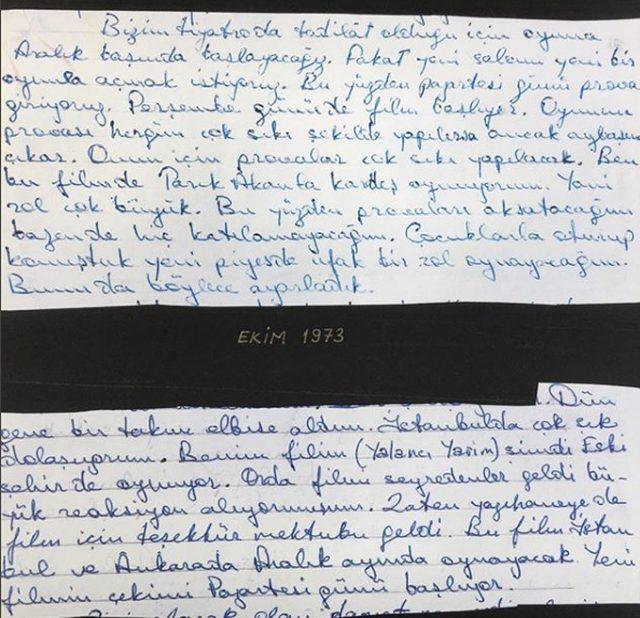 Bizim tiyatroda tadilât olduğu için oyuna
Aralık başında başlayacağız. Fakat yeni salonu yeni bir
oyunla açmak istiyoruz. Bu yüzden pazartesi günü prova
giriyoruz. Perşembe günü de film başlıyor. Oyunun
provası hergün çok sıkı şekilde yapılırsa ancak aybaşına
çıkar. Onun için provalar çok sıkı yapılacak. Ben
bu filmde Tarık Akanla kardeş oynuyorum. Yani
rol çok büyük. Bu yüzden provaları aksatacağım
bazende hiç katılamayacağım. Çocuklarla oturup
konuştuk yeni piyesde ufak bir rol oynayacağım.
Bunu da böylece ayarladık.
EKİM 1973
Dün
gene bir takım elbise aldım. İstanbulda çok şık
dolaşıyorum. Benim filim (Yalancı Yarim) şimdi Eski
şehir de oynuyor. Orda filmi seyredenler geldi bü-
yük reaksiyon alıyormuşum. Zaten yazıhaneye de
film için teşekkür mektubu geldi. Bu film İstan
bul ve Ankarada Aralık ayında oynayacak. Yeni
filmin çekimi Pazartesi günü başlıyor.